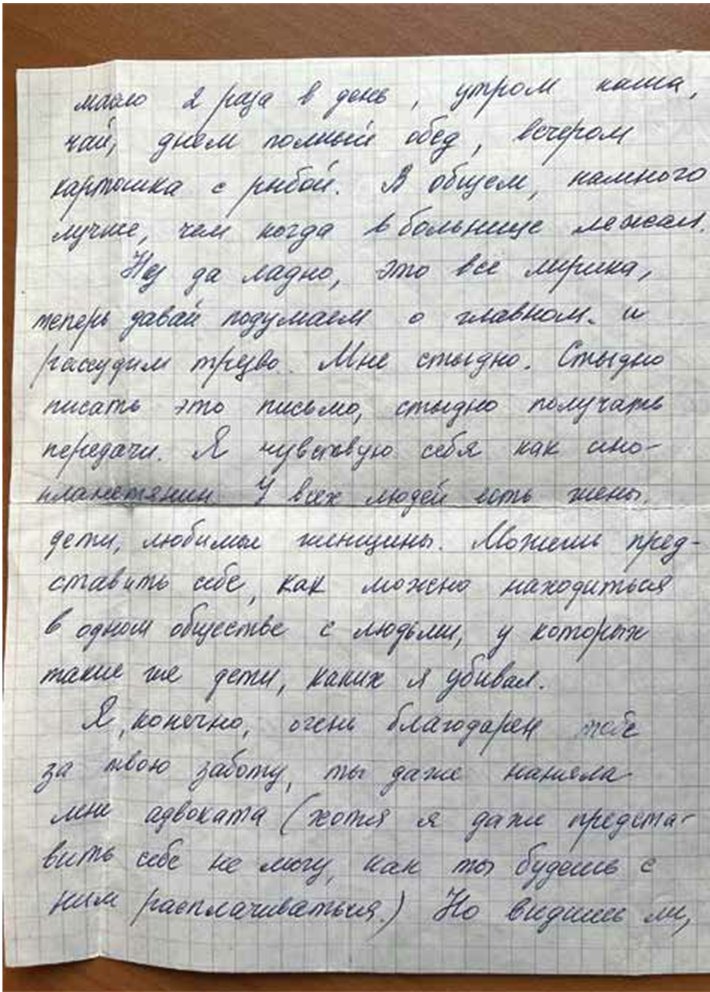 масло 2 раза в день, утром каша,
чай, днем полный обед, вечером
картошка с рыбой. В общем, намного
лучше, чем когда в больнице лежал.
Ну да ладно, это все лирика,
теперь давай подумаем о главном и
рассудим трезво. Мне стыдно. Стыдно
писать это письмо, стыдно получать
передачи. Я чувствую себя как ино-
планетянин. У всех людей есть жены,
дети, любимые женщины. Можешь пред-
ставить себе, как можно находиться
в одном обществе с людьми, у которых
такие же дети, каких я убивал.
Я, конечно, очень благодарен тебе
за твою заботу, ты даже наняла
мне адвоката (хотя я даже предста-
вить себе не могу, как ты будешь с
ним расплачиваться.) Но видишь ли,